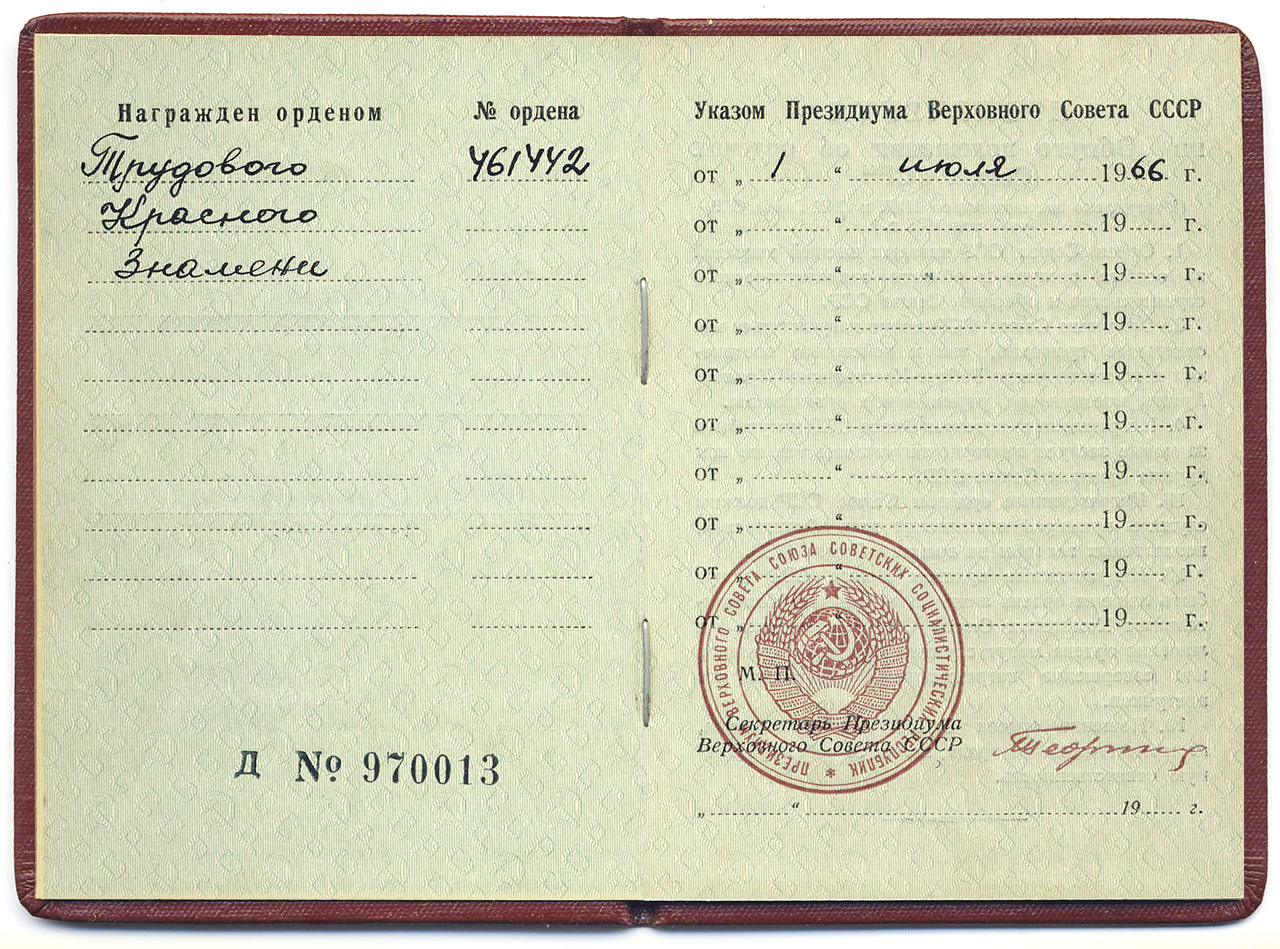 Награжден орденом
№ ордена
Трудового
461442
Красного
Знамени
Д № 970013
Указом Президиума Верховного Совета СССР
от „ 1 “ июля 1966 г.
от „ “ 19 г.
от „ “ 19 г.
от „ “ 19 г.
от „ “ 19 г.
от „ “ 19 г.
от „ “ 19 г.
от „ “ 19 г.
от „ “ 19 г.
от „ “ 19 г.
ПРЕЗИДИУМ ВЕРХОВНОГО СОВЕТА СОЮЗА СОВЕТСКИХ СОЦИАЛИСТИЧЕСКИХ РЕСПУБЛИК *
М. П.
Секретарь Президиума
Верховного Совета СССР
„ “ 19 г.